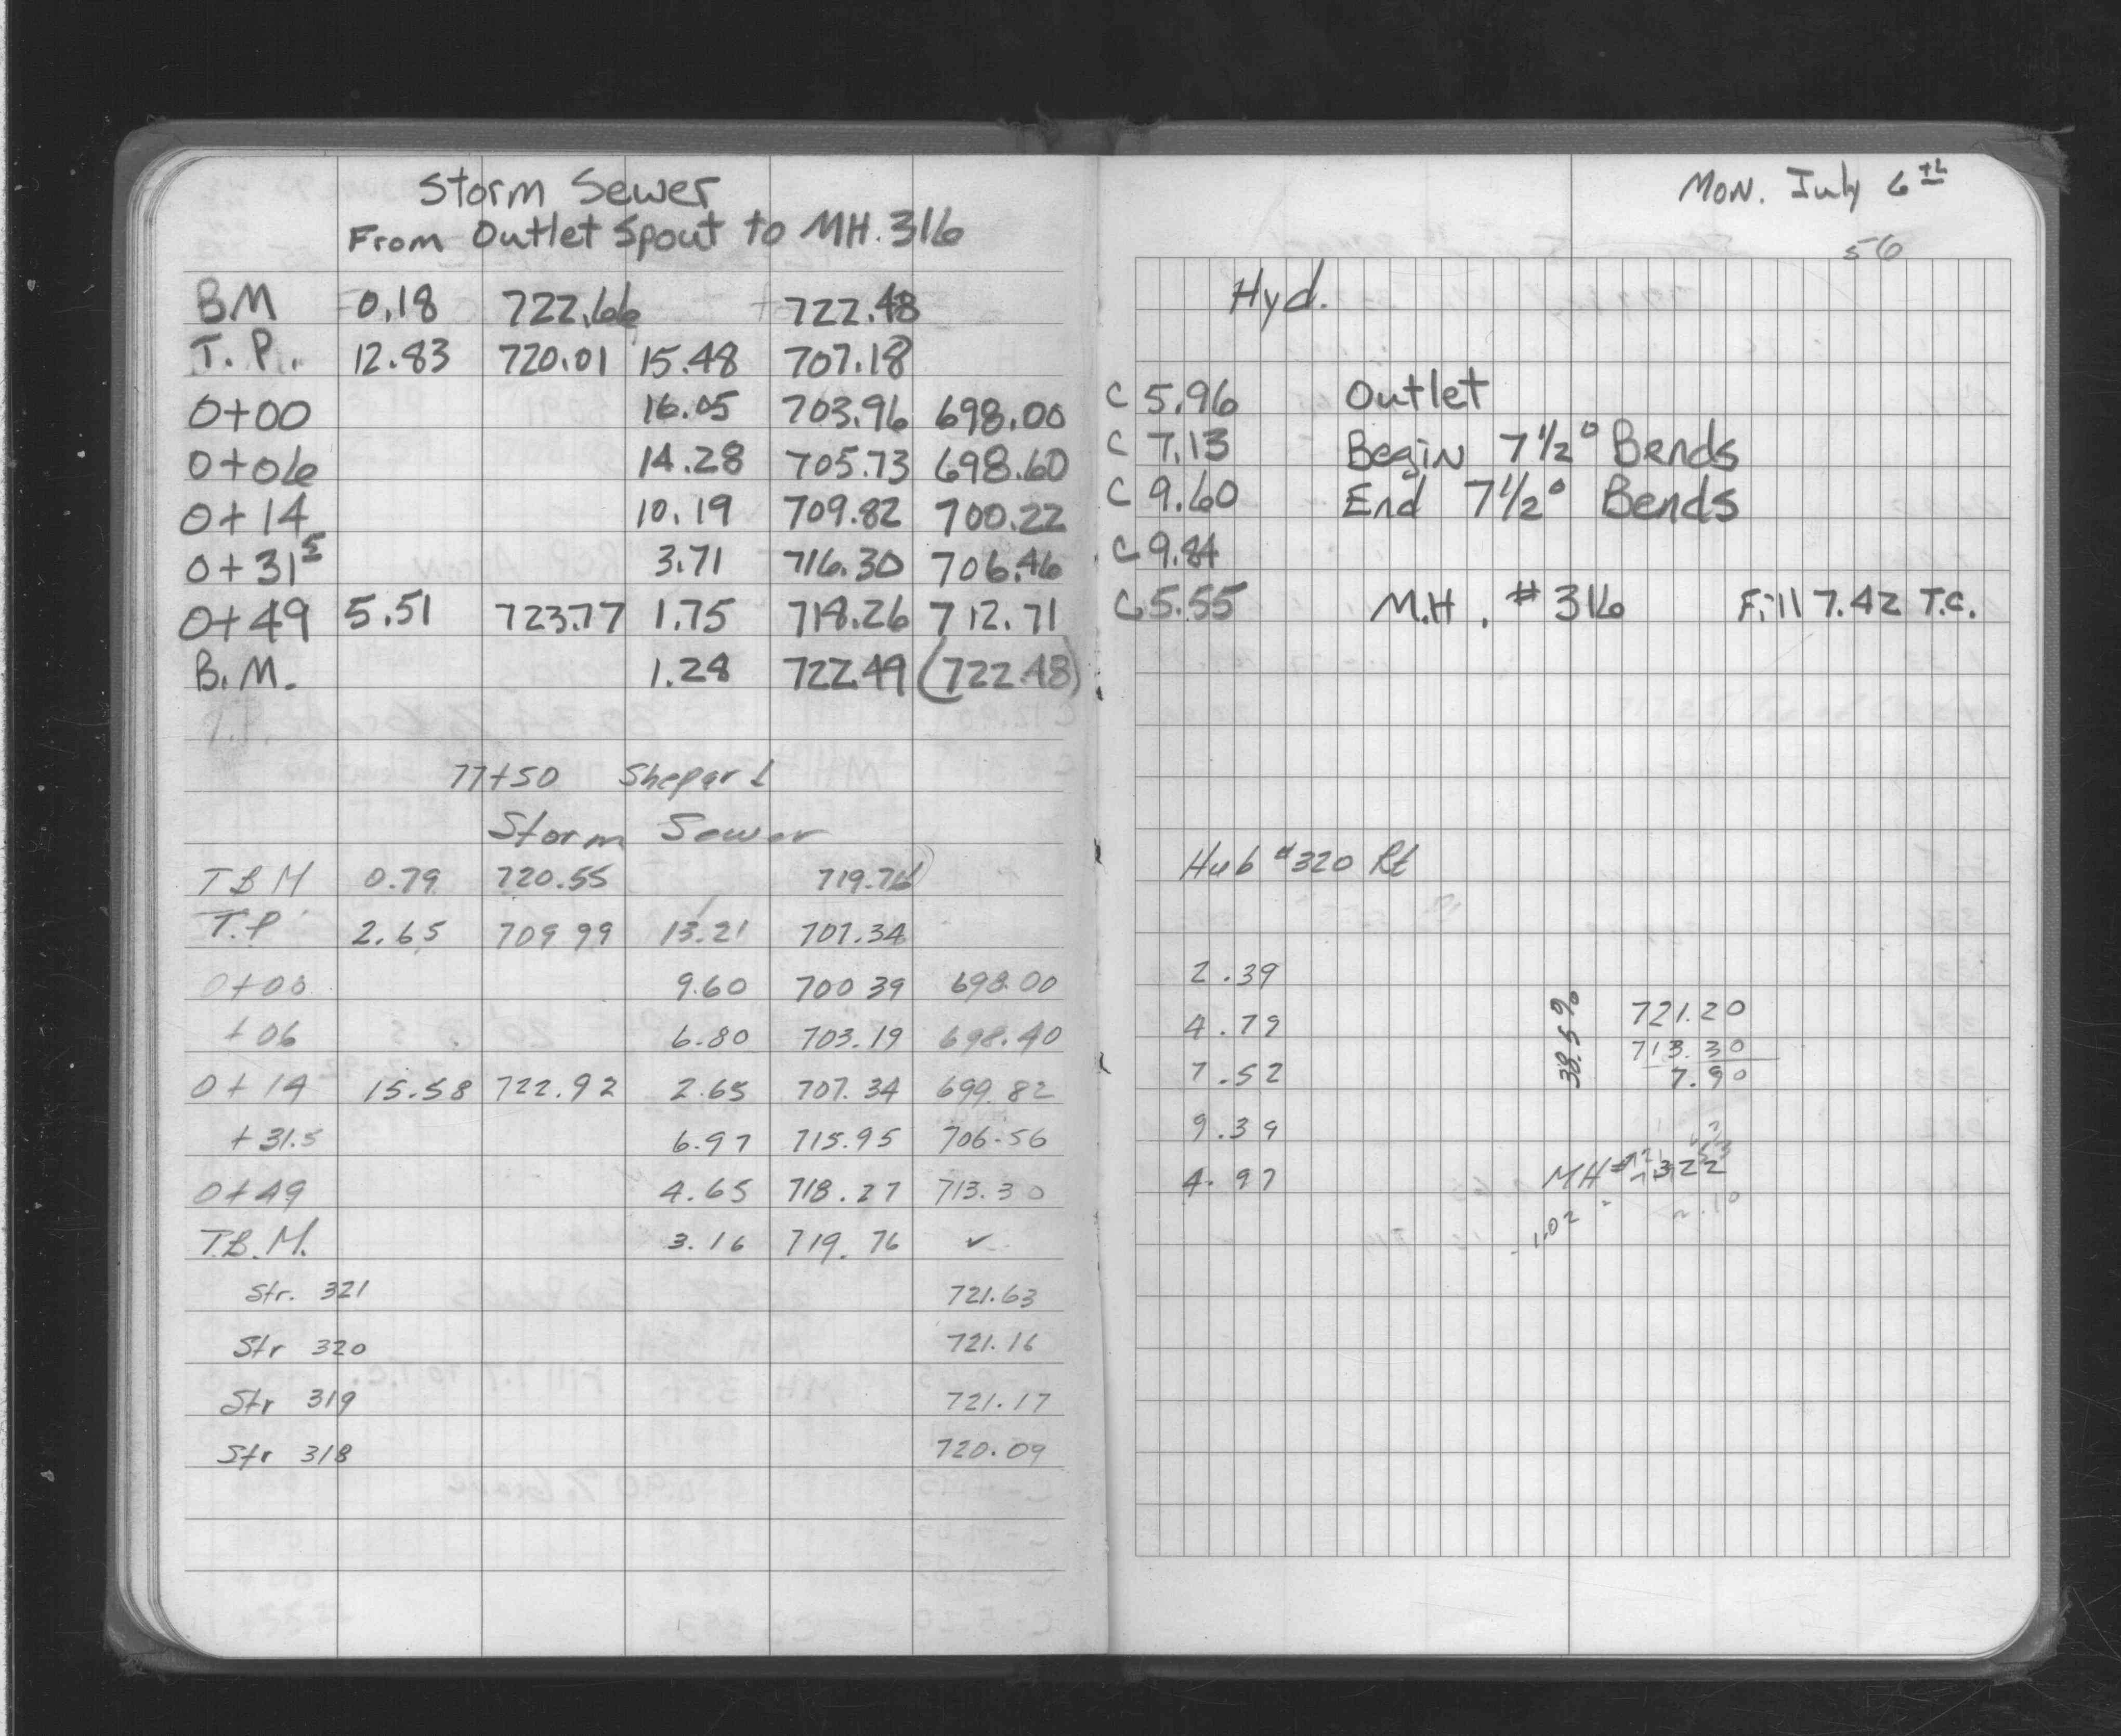 Storm Sewer
From Outlet Spout to MH. 316
BM 0.18 722.66 722.48
T.P. 12.83 720.01 15.48 707.18
0+00 16.05 703.96 698.00
0+06 14.28 705.73 698.60
0+14 10.19 709.82 700.22
0+31⁵ 3.71 716.30 706.46
0+49 5.51 723.77 1.75 718.26 712.71
B.M. 1.28 722.49 (722.48)
77+50 Shepard
Storm Sewer
TBM 0.79 720.55 719.76
T.P 2.65 709 99 13.21 707.34
0+00 9.60 700 39 698.00
+06 6.80 703.19 698.40
0+14 15.58 722.92 2.65 707.34 699 82
+31.5 6.97 715.95 706.56
0+49 4.65 718.27 713.30
T.B.M. 3.16 719.76 ✓
Str. 321 721.63
Str 320 721.16
Str 319 721.17
Str 318 720.09
Mon. July 6th
56
Hyd.
C 5.96 Outlet
C 7.13 Begin 7½° Bends
C 9.60 End 7½° Bends
C 9.84
C 5.55 M.H. #316 Fill 7.42 T.C.
Hub #320 Rt
2.39
4.79
7.52
9.39
4.97
38.5%
721.20
713.30
7.90
MH# 322
1.02